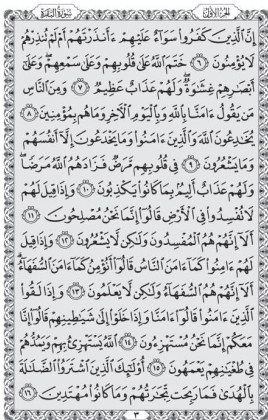 الجزء الأول سورة البقرة
إِنَّ ٱلَّذِينَ كَفَرُوا۟ سَوَآءٌ عَلَيْهِمْ ءَأَنذَرْتَهُمْ أَمْ لَمْ تُنذِرْهُمْ
لَا يُؤْمِنُونَ ٦ خَتَمَ ٱللَّهُ عَلَىٰ قُلُوبِهِمْ وَعَلَىٰ سَمْعِهِمْ ۖ وَعَلَىٰٓ
أَبْصَـٰرِهِمْ غِشَـٰوَةٌ ۖ وَلَهُمْ عَذَابٌ عَظِيمٌ ٧ وَمِنَ ٱلنَّاسِ
مَن يَقُولُ ءَامَنَّا بِٱللَّهِ وَبِٱلْيَوْمِ ٱلْـَٔاخِرِ وَمَا هُم بِمُؤْمِنِينَ ٨
يُخَـٰدِعُونَ ٱللَّهَ وَٱلَّذِينَ ءَامَنُوا۟ وَمَا يَخْدَعُونَ إِلَّآ أَنفُسَهُمْ
وَمَا يَشْعُرُونَ ٩ فِى قُلُوبِهِم مَّرَضٌ فَزَادَهُمُ ٱللَّهُ مَرَضًا ۖ
وَلَهُمْ عَذَابٌ أَلِيمٌۢ بِمَا كَانُوا۟ يَكْذِبُونَ ١٠ وَإِذَا قِيلَ لَهُمْ
لَا تُفْسِدُوا۟ فِى ٱلْأَرْضِ قَالُوٓا۟ إِنَّمَا نَحْنُ مُصْلِحُونَ ١١
أَلَآ إِنَّهُمْ هُمُ ٱلْمُفْسِدُونَ وَلَـٰكِن لَّا يَشْعُرُونَ ١٢ وَإِذَا قِيلَ
لَهُمْ ءَامِنُوا۟ كَمَآ ءَامَنَ ٱلنَّاسُ قَالُوٓا۟ أَنُؤْمِنُ كَمَآ ءَامَنَ ٱلسُّفَهَآءُ ۗ
أَلَآ إِنَّهُمْ هُمُ ٱلسُّفَهَآءُ وَلَـٰكِن لَّا يَعْلَمُونَ ١٣ وَإِذَا لَقُوا۟
ٱلَّذِينَ ءَامَنُوا۟ قَالُوٓا۟ ءَامَنَّا وَإِذَا خَلَوْا۟ إِلَىٰ شَيَـٰطِينِهِمْ قَالُوٓا۟ إِنَّا
مَعَكُمْ إِنَّمَا نَحْنُ مُسْتَهْزِءُونَ ١٤ ٱللَّهُ يَسْتَهْزِئُ بِهِمْ وَيَمُدُّهُمْ
فِى طُغْيَـٰنِهِمْ يَعْمَهُونَ ١٥ أُو۟لَـٰٓئِكَ ٱلَّذِينَ ٱشْتَرَوُا۟ ٱلضَّلَـٰلَةَ
بِٱلْهُدَىٰ فَمَا رَبِحَت تِّجَـٰرَتُهُمْ وَمَا كَانُوا۟ مُهْتَدِينَ ١٦
٣